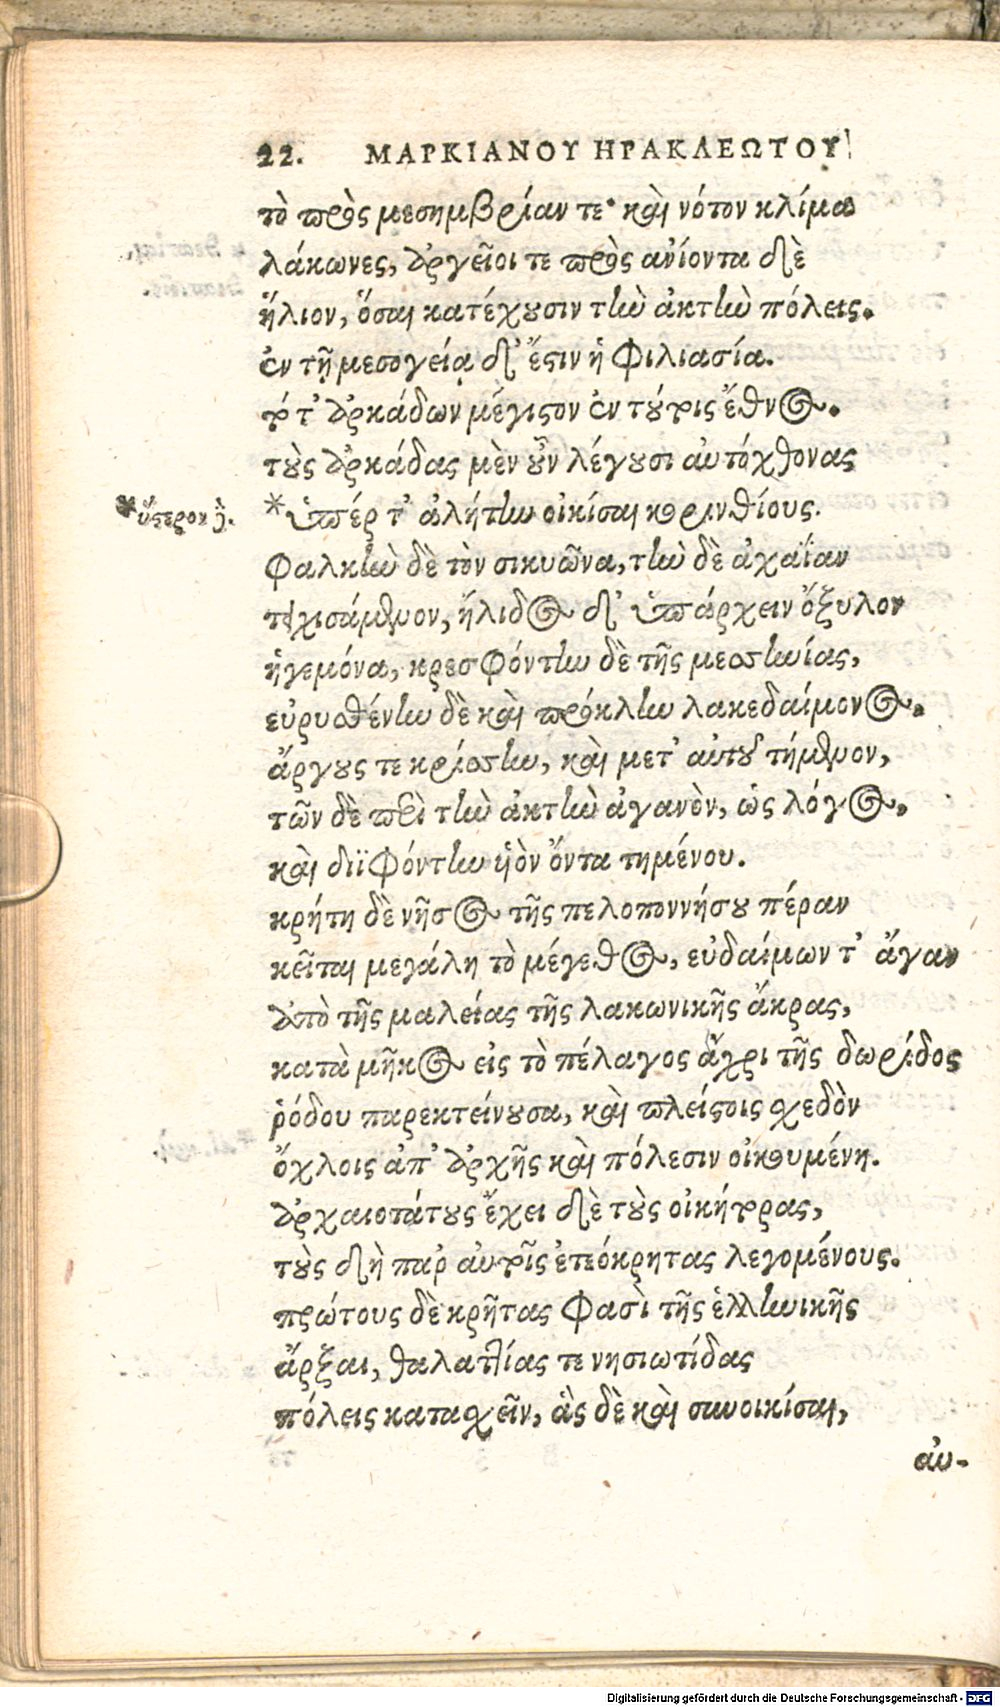 22. ΜΑΡΚΙΑΝΟΥ ΗΡΑΚΛΕΩΤΟΥ
τὸ πρὸς μεσημβρίαν τε· καὶ νότον κλίμα
λάκωνες, ἀργεῖοι τε πρὸς ἀνίοντα δὲ
ἥλιον, ὅσαι κατέχουσιν τὴν ἀκτὴν πόλεις.
ἐν τῇ μεσογείᾳ δ' ἔστιν ἡ Φιλιασία.
τό τ' ἀρκάδων μέγιστον ἐν τούτοις ἔθνος.
τοὺς ἀρκάδας μὲν οὖν λέγουσι αὐτόχθονας
*ὕστερον ἢ.
*ὑπέρ τ' ἀλήτην οἰκίσαι κορινθίους.
Φαλκὴν δὲ τὸν σικυῶνα, τὴν δὲ ἀχαΐαν
τειχισάμενον, ἤλιδος δ' ὑπάρχειν ὄξυλον
ἡγεμόνα, κρεσφόντην δὲ τῆς μεσσηνίας,
εὐρυσθένην δὲ καὶ πρόκλην λακεδαίμονος.
ἄργους τε κρίσσην, καὶ μετ' αὐτοῦ τήμενον,
τῶν δὲ περὶ τὴν ἀκτὴν ἀγανὸν, ὡς λόγος,
καὶ διϊφόντην υἱὸν ὄντα τημένου.
κρήτη δὲ νῆσος τῆς πελοποννήσου πέραν
κεῖται μεγάλη τὸ μέγεθος, εὐδαίμων τ' ἄγαν
ἀπὸ τῆς μαλείας τῆς λακωνικῆς ἄκρας,
κατὰ μῆκος εἰς τὸ πέλαγος ἄχρι τῆς δωρίδος
ῥόδου παρεκτείνουσα, καὶ πλείστοις σχεδὸν
ὄχλοις ἀπ' ἀρχῆς καὶ πόλεσιν οἰκουμένη.
ἀρχαιοτάτους ἔχει δὲ τοὺς οἰκήτορας,
τοὺς δὴ παρ' αὐτοῖς ἐτεόκρητας λεγομένους.
πρώτους δὲ κρῆτας φασὶ τῆς ἑλληνικῆς
ἄρξαι, θαλαττίας τε νησιωτίδας
πόλεις κατασχεῖν, ἃς δὲ καὶ συνοικίσαι,
αὐ-
Digitalisierung gefördert durch die Deutsche Forschungsgemeinschaft - DFG